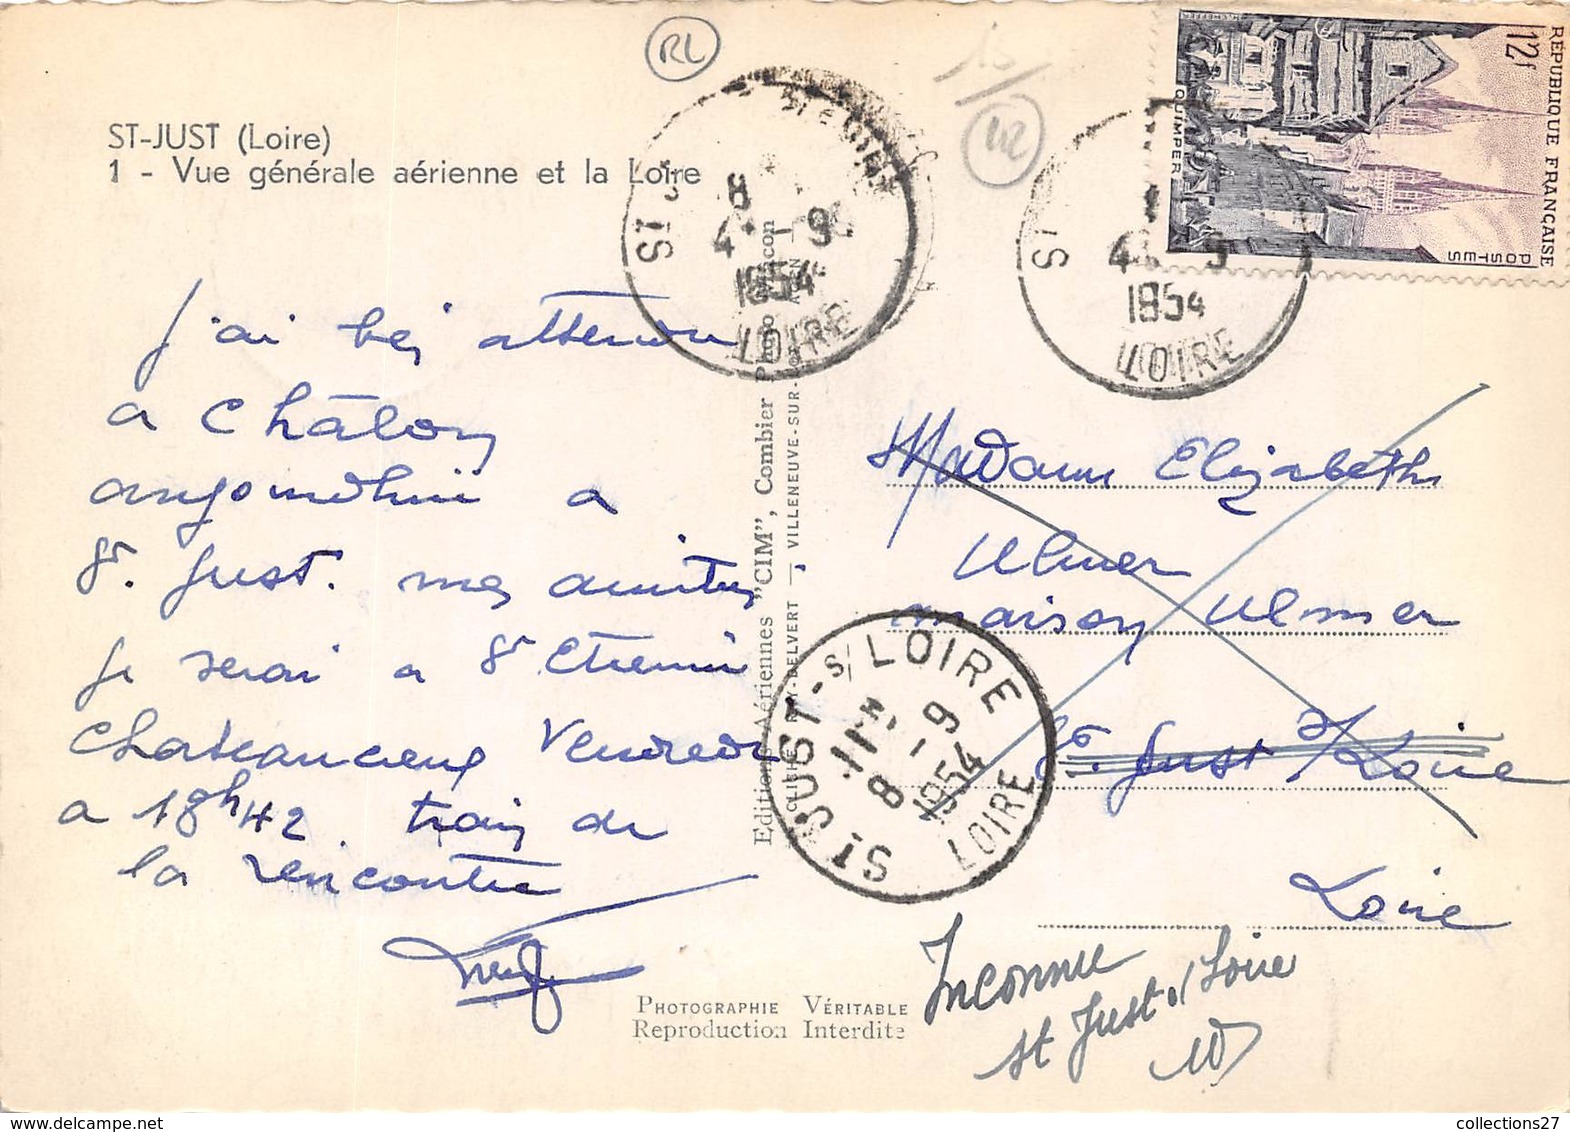 RL
10/
112
ST-JUST (Loire)
1 - Vue générale aérienne et la Loire
8
4 - 9
1954
LOIRE
4 - 9
1954
LOIRE
RÉPUBLIQUE FRANÇAISE
12f
POSTES
QUIMPER
J'ai bej attendu
a Châlon
aujourdhui a
St. Just. mes amities
Je serai a St Etienne
Chateaucreux Vendredi
a 18h42 train de
la rencontre
Editions Aériennes "CIM", Combier
VILLENEUVE-SUR-
Madame Elizabeth
Ulmer
maison Ulmer
St. Just s/Loire
Loire
ST JUST-S/LOIRE
8 - 9
1954
LOIRE
Inconnue
St Just s/Loire
PHOTOGRAPHIE VÉRITABLE
Reproduction Interdite
collections27